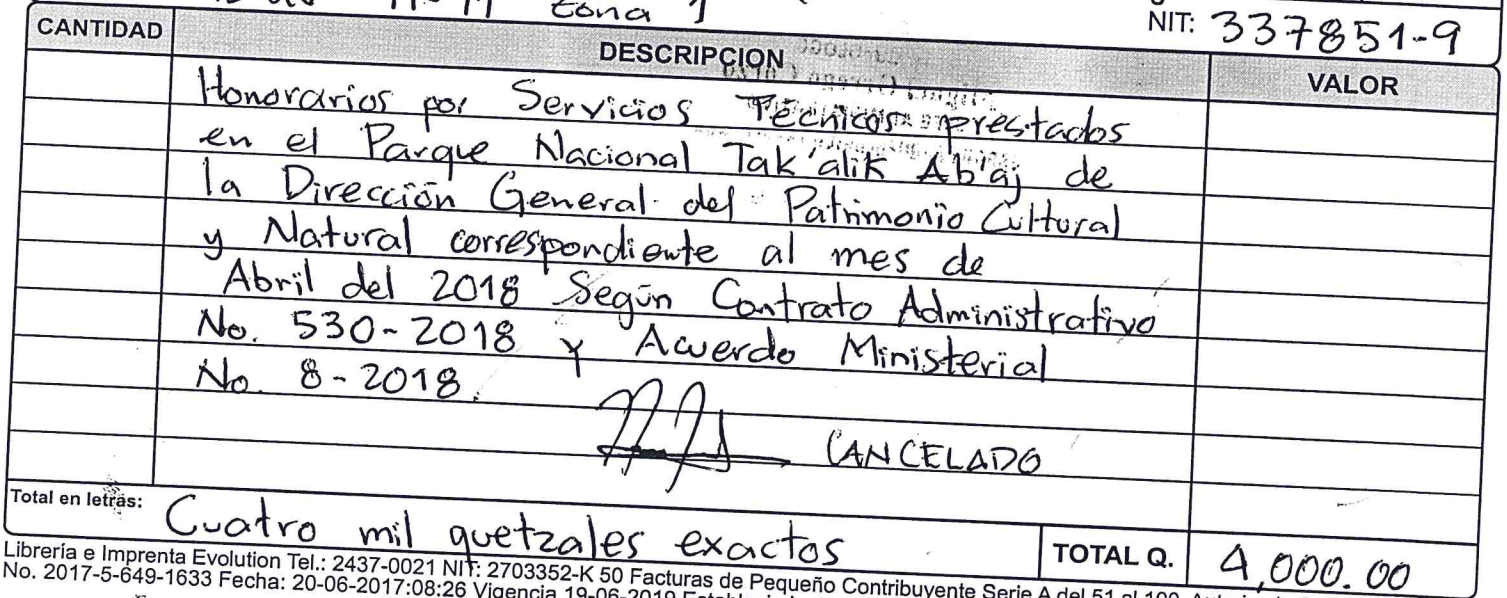 11-11 zona 1
NIT: 337851-9
CANTIDAD DESCRIPCION VALOR
Honorarios por Servicios Técnicos prestados
en el Parque Nacional Tak'alik Ab'aj de
la Dirección General del Patrimonio Cultural
y Natural correspondiente al mes de
Abril del 2018 Según Contrato Administrativo
No. 530-2018 y Acuerdo Ministerial
No. 8-2018.
CANCELADO
Total en letras: Cuatro mil quetzales exactos TOTAL Q. 4,000.00
Librería e Imprenta Evolution Tel.: 2437-0021 NIT: 2703352-K 50 Facturas de Pequeño Contribuyente Serie A del 51 al 100
No. 2017-5-649-1633 Fecha: 20-06-2017:08:26 Vigencia 19-06-2019